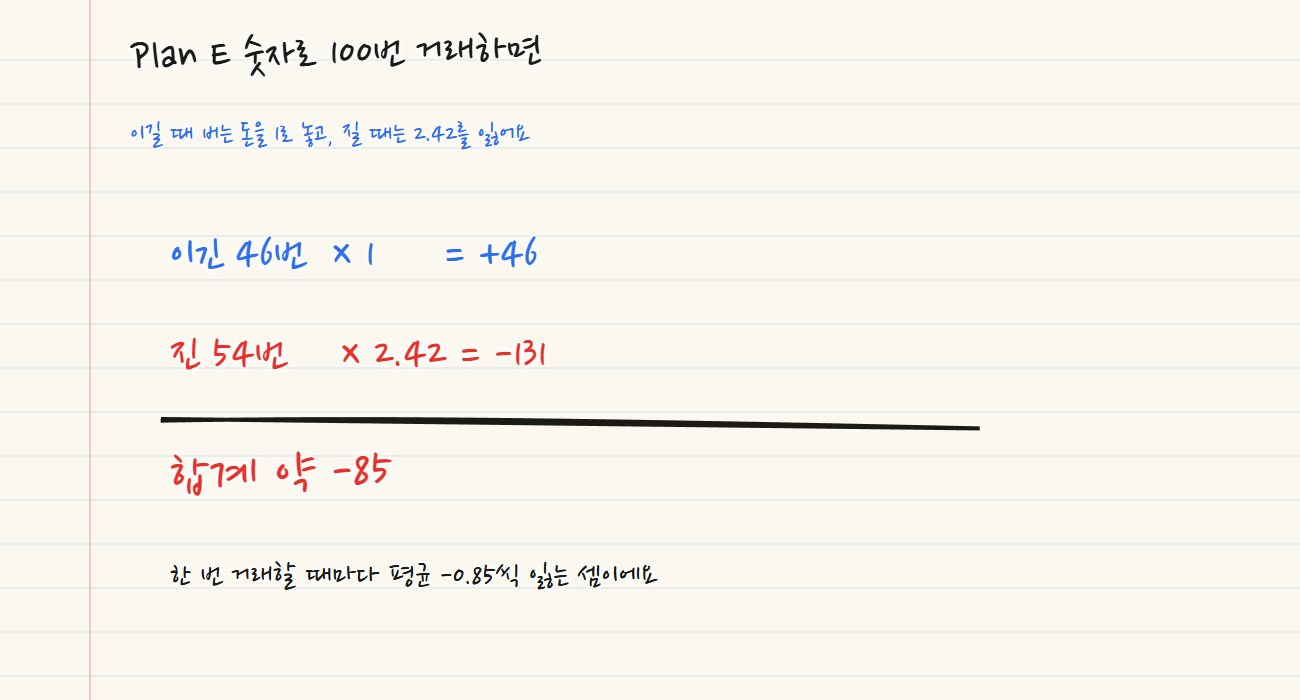 Plan E 숫자로 100번 거래하면
이길 때 버는 돈을 1로 놓고, 질 때는 2.42를 잃어요
이긴 46번 × 1 = +46
진 54번 × 2.42 = -131
합계 약 -85
한 번 거래할 때마다 평균 -0.85씩 잃는 셈이에요